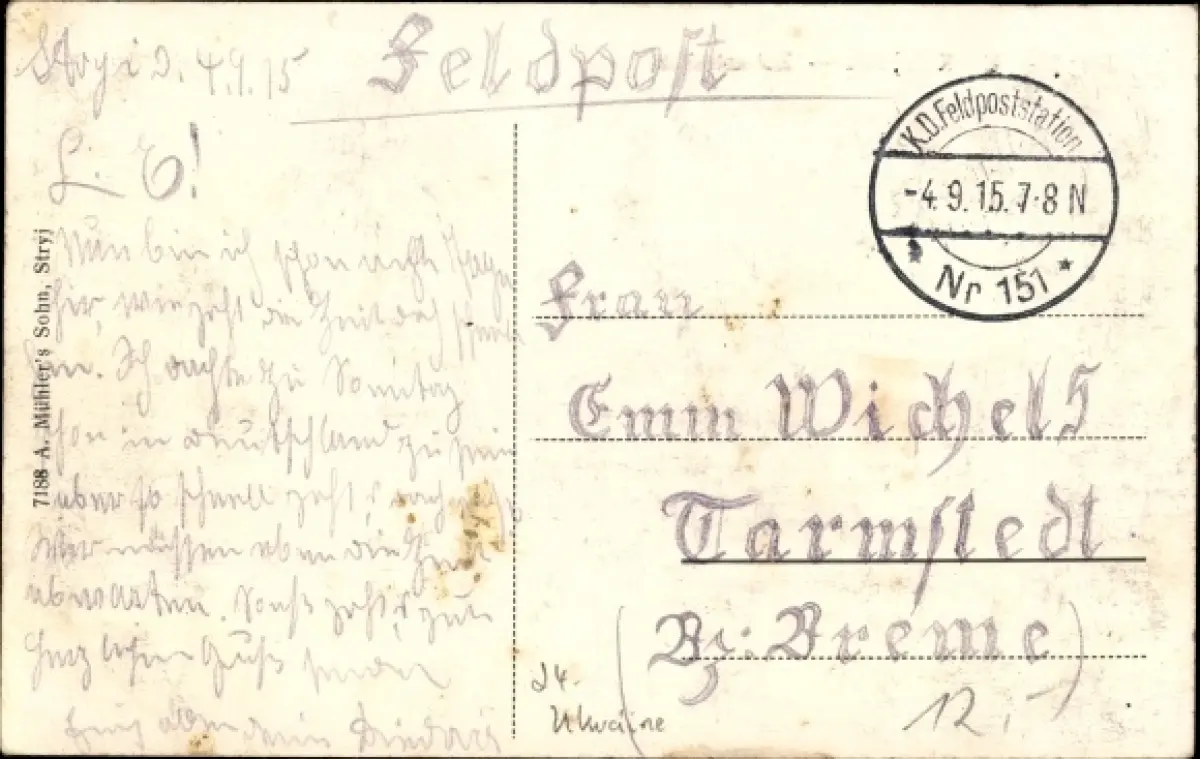 Stryj d. 4.9.15
Feldpost
L. E!
Nun bin ich schon acht Tage
hier wie geht die Zeit doch schnell
hin. Ich dachte zu Sonntag
schon in Deutschland zu sein
aber so schnell geht's noch nicht
Wir müssen eben die Zeit
abwarten. Sonst geht's gut
Herzlichen Gruß
dein Diedrich
7188 A. Mühler's Sohn, Stryj
K.D. Feldpoststation
-4.9.15.7-8 N
* Nr 151 *
Frau
Emm Wichels
Tarmstedt
(Bz. Breme)
24.
Ukraine
12,-